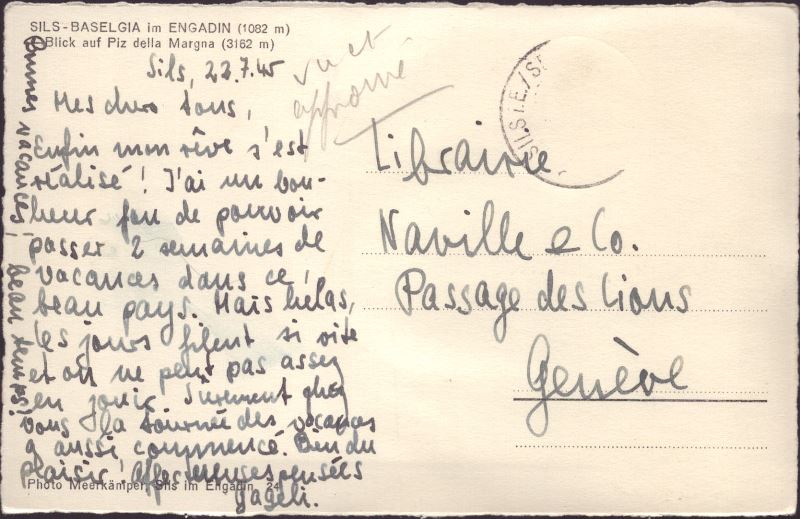 SILS-BASELGIA im ENGADIN (1082 m)
Blick auf Piz della Margna (3162 m)
Sils, 22.7.45
Mes chers tous,
Enfin mon rêve s'est
réalisé! J'ai un bon-
heur fou de pouvoir
passer 2 semaines de
vacances dans ce
beau pays. Mais hélas,
les jours filent si vite
et on ne peut pas assez
en jouir. Surement chez
vous la tournée des vacances
a aussi commencé. Bien du
plaisir! Affectueuses pensées
Jageli.
Bonnes vacances, beau temps!
Photo Meerkämper, Sils im Engadin 24
vu et
approuvé
SILS I.E./SE
Librairie
Naville & Co.
Passage des Lions
Genève